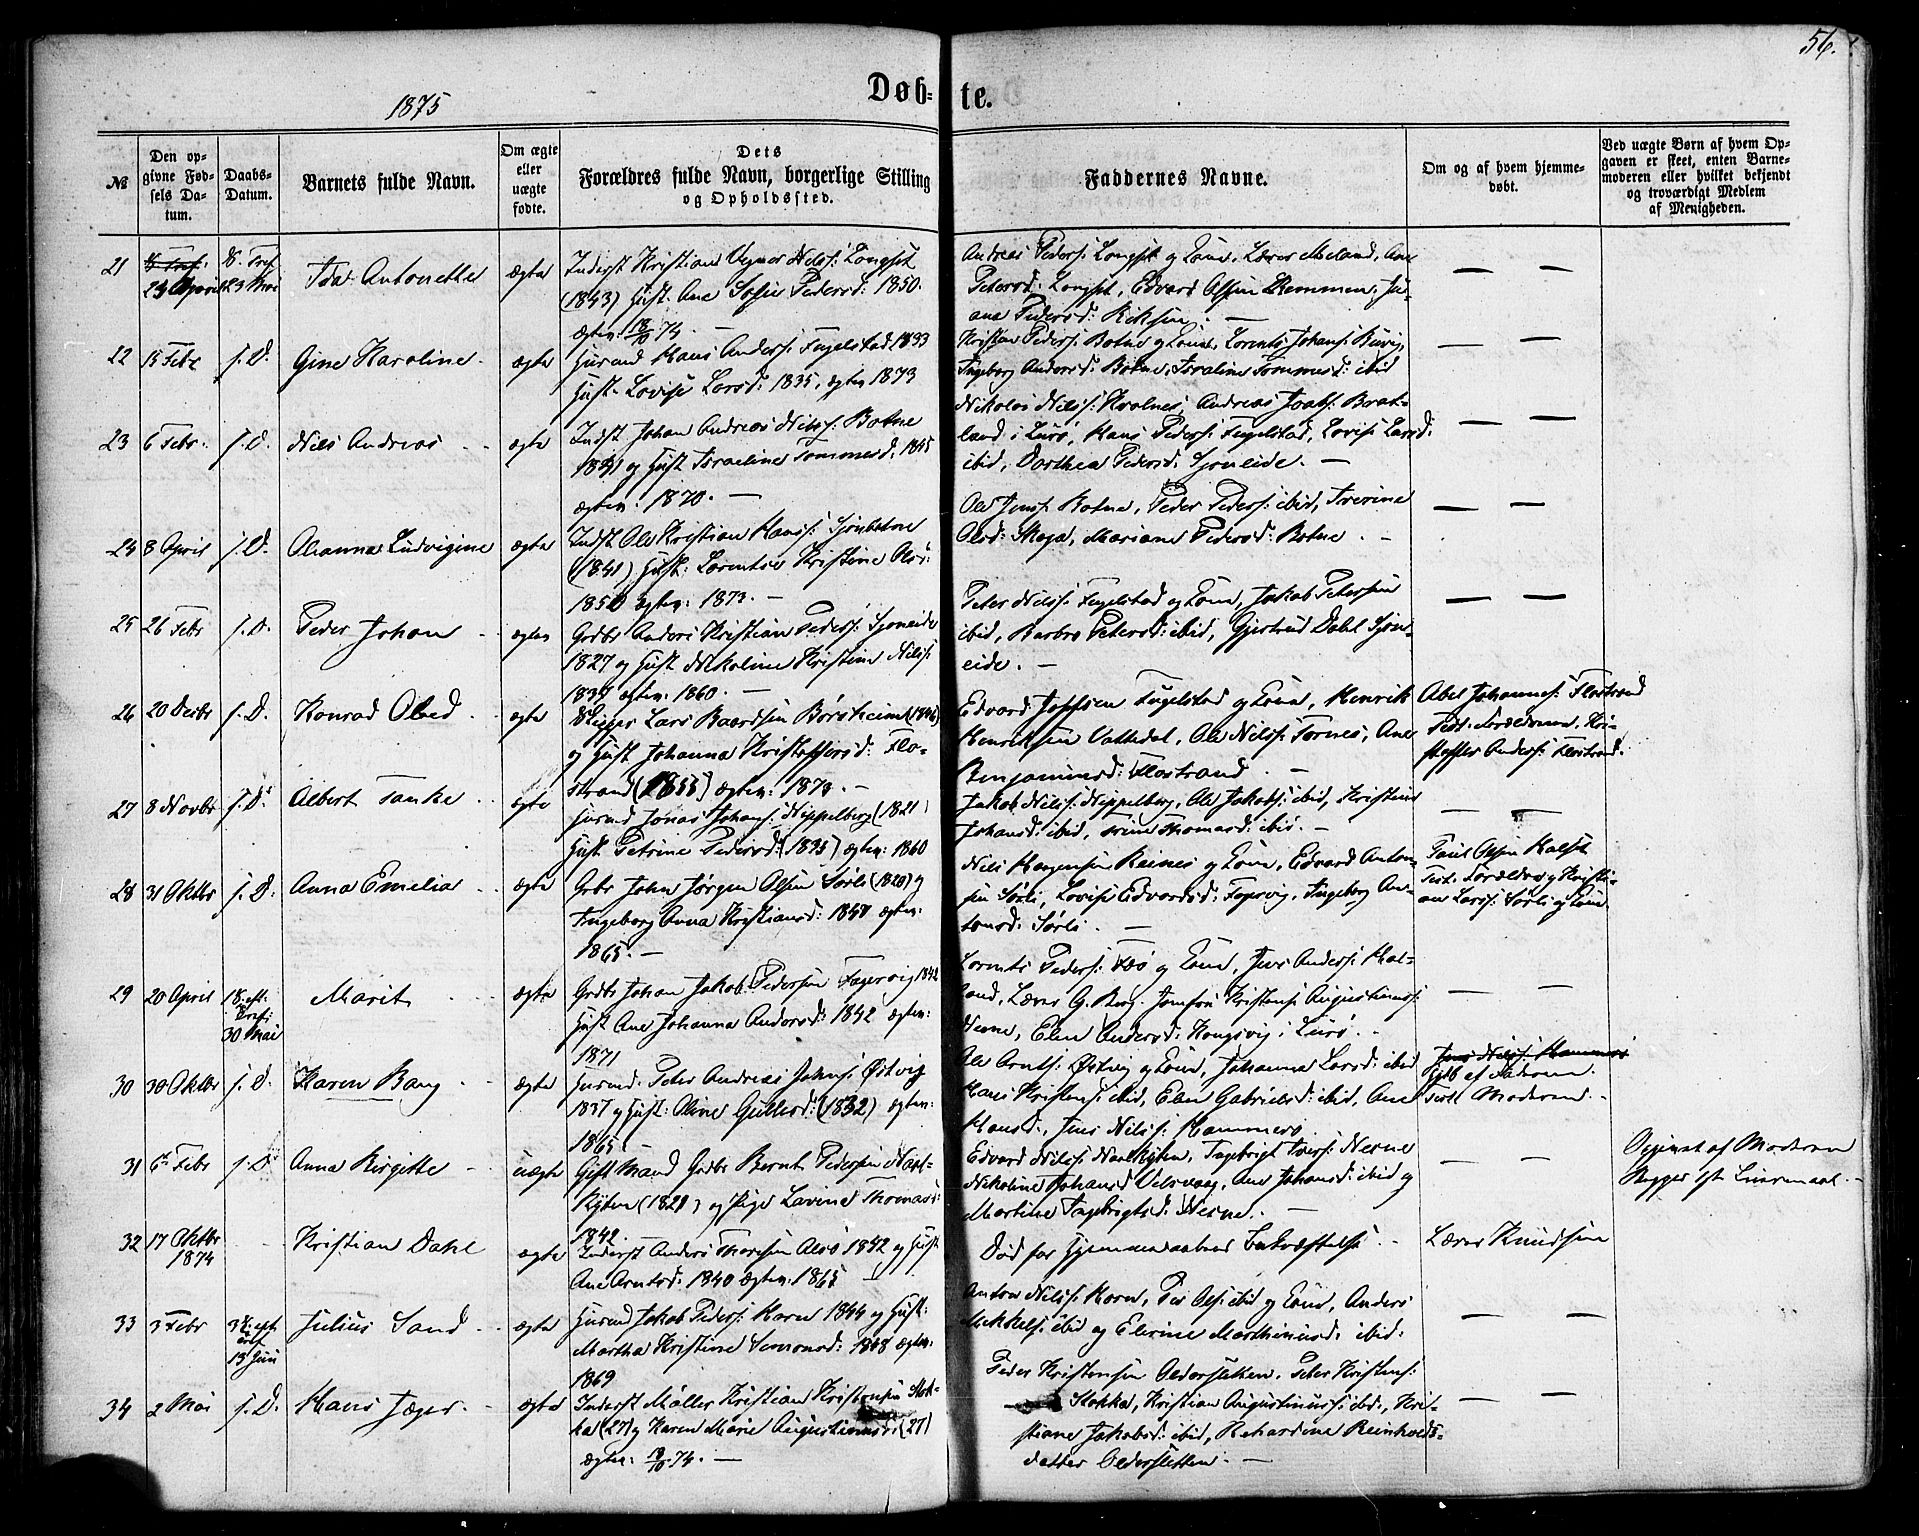 56.
1875
Døb- te.
№
Den op-
givne Fød-
sels Da-
tum.
Daabs-
Datum.
Barnets fulde Navn.
Om ægte
eller
uægte
fødte.
Dets
Forældres fulde Navn, borgerlige Stilling
og Opholdssted.
Faddernes Navne.
Om og af hvem hjemme-
døbt.
Ved uægte Børn af hvem Op-
gaven er skeet, enten Barne-
moderen eller hvilket bekjendt
og troværdigt Medlem
af Menigheden.
21
23 April
23 Mai
Ida Antonette
ægte
Inderst Kristian Vegner Nilss: Longset
(1843) Hust. Ane Sofie Pedersd: 1850.
ægtev: 18/10 74. —
Andreas Peders: Longset og Kone, Lærer Meland, Ane
Petersd: Longset, Edvard Olsen Hemmen, Ja-
ana Pedersd:
— —
22
15 Febr
s. D.
Gine Karoline
ægte
Husmd Hans Anders: Fugelstad 1833
Hust. Lovise Larsd: 1835, ægtev 1873
Kristen Peders: Botne og Kone, Lorents Johans: Buvig
Ingeborg Andersd: Botne, Israeline Tommesd: ibid
— —
23
6 Febr.
s. D.
Nils Andreas
ægte
Indst Johan Andreas Nilss: Botne
1841 og Hust Israeline Tommesd: 1845
ægtev. 1870. —
Nikolai Nilss: Kvalnes, Andreas Joaks: Brat-
land i Lurø, Hans Peders: Fugelstad, Lovise Larsd:
ibid, Dorthea Pedersd: Sjoneide. —
— —
24
8 April
s. D.
Oleanna Ludvigine
ægte
Indst Ole Kristian Hanss: Sjonbotne
(1841) Hust: Lorentse Kristine Olsd:
1850 ægtev: 1873. —
Ole Jenss: Botne, Peder Peders: ibid,
Olsd: Skoga, Mariane Pedersd: Botne. —
— —
25
26 Febr
s. D.
Peder Johan
ægte
Grdbr Anders Kristian Peders: Sjoneide
1827 og Hust Nikoline Kristine Nilss:
1837 ægtev: 1860. —
Peter Nilss: Fugelstad og Kone, Jakob Petersen
ibid, Barbro Petersd: ibid, Gjertrud Dahl Sjon-
eide. —
— —
26
20 Decbr
s. D.
Konrad Obed
ægte
Lars Baardsen Børsheim (1846)
og Hust Johanna Kristoffersd: Flo-
strand (1855) ægtev: 1873. —
Edvard Fugelstad og Kone, Henrik
Henriksen Valledal, Ole Nilss: Fornes, Ane
Benjaminsd: Flostrand. —
Abel Johanness: Flostrand
Test: Forældrene, Kri-
stoffer Anders: Flostrand.
27
8 Novbr
s. D.
Albert Tanke
ægte
Husmd Jonas Johans: Nippelberg (1821)
Hust Petrine Pedersd: (1825) ægtev: 1860
Jakob Nilss: Nippelberg, Ole Jakobs: ibid, Kristine
Johansd: ibid, Trine Thomasd: ibid. —
— —
28
31 Oktbr
s. D.
Anna Emelia
ægte
Grbr John Jørgen Olsen Sørli (1820) og
Ingeborg Anna Kristiansd: 1840 ægtev:
1865. —
Nils Reines og Kone, Edvard Anton-
sen Sørli, Lovise Edvardsd: Fagervig, Ingeborg An-
tonsd: Sørli. —
Paul Olsen Kalset
Test: Forældre og Kristi-
an Larss: Sørli og Kone.
29
20 April
18. eft.
Tref:
30 Mai
Marit
ægte
Grdbr Johan Jakob Pedersen Fagervig 1842
Hust Ane Johanna Andersd: 1842 ægtev:
1871
Lorents Peders: og Kone, Jens Anders: Hal-
land, Lærer G. Berg, Jomfru Kristense Augustinuss:
Nesne, Elen Andersd: Kongsvig i Lurø. —
— —
30
30 Oktbr
s. D.
Karen Bang
ægte
Husmd. Peter Andreas Johns: Østvig
1837 og Hust: Oline Gullesd: (1832) ægtev:
1865. —
Ole Arnts: Østvig og Kone, Johanna Larsd: ibid
Hans Kristens: ibid, Elen Gabrielsd: ibid, Ane
Hansd., Jens Nilss: Hammerø
Jens Nilss: Hammerø
Hdb af Faderen.
Test Moderen. —
31
6te Febr
s. D
Anna Birgitte
uægte
Gift Mand Grdbr Bernt Pedersen
(1821) og Pige Lavine Thomasd:
1842.
Edvard Nilss: Ingebrigt Ivers: Nesne
Nikoline Johansd Vetvaag, Ane Johansd: ibid og
Martine Ingebrigtsd: Nesne. —
— —
Opgivet af Moderen
32
17 Oktbr
1874
Kristian Dahl
ægte
Inderst Anders Thoresen Alsø 1842 og Hust
Ane Arntsd: 1840 ægtev: 1865
Død før Hjemmedaabens Bekræftelse
Lærer Knudsen
33
3 Febr
3 S: eft
Tref
13 Juni
Julius Sand
ægte
Husmd Jakob Peders: Horn 1844 og Hust:
Martha Kristine Semonsd: 1848 ægtev:
1869
Anton Nilss: Horn, Per Ols: ibid og Kone, Anders
Mikkels: ibid og Elerine Marthinusd: ibid:
— —
34
2 Mai
s. D.
Hans Jæger
ægte
Inderst Møller Kristian Kristensen Stok-
ka (27) og Karen Marie Augustinusd: (27)
ægtev: 18/10 74. —
Peder Kristensen Oldersletten, Peter Kristens:
Stokka, Kristian Augustinuss: ibid, Kri-
stiane Jakobsd: ibid, Rekardine Reinholds-
datter Oldersletten. —
— —